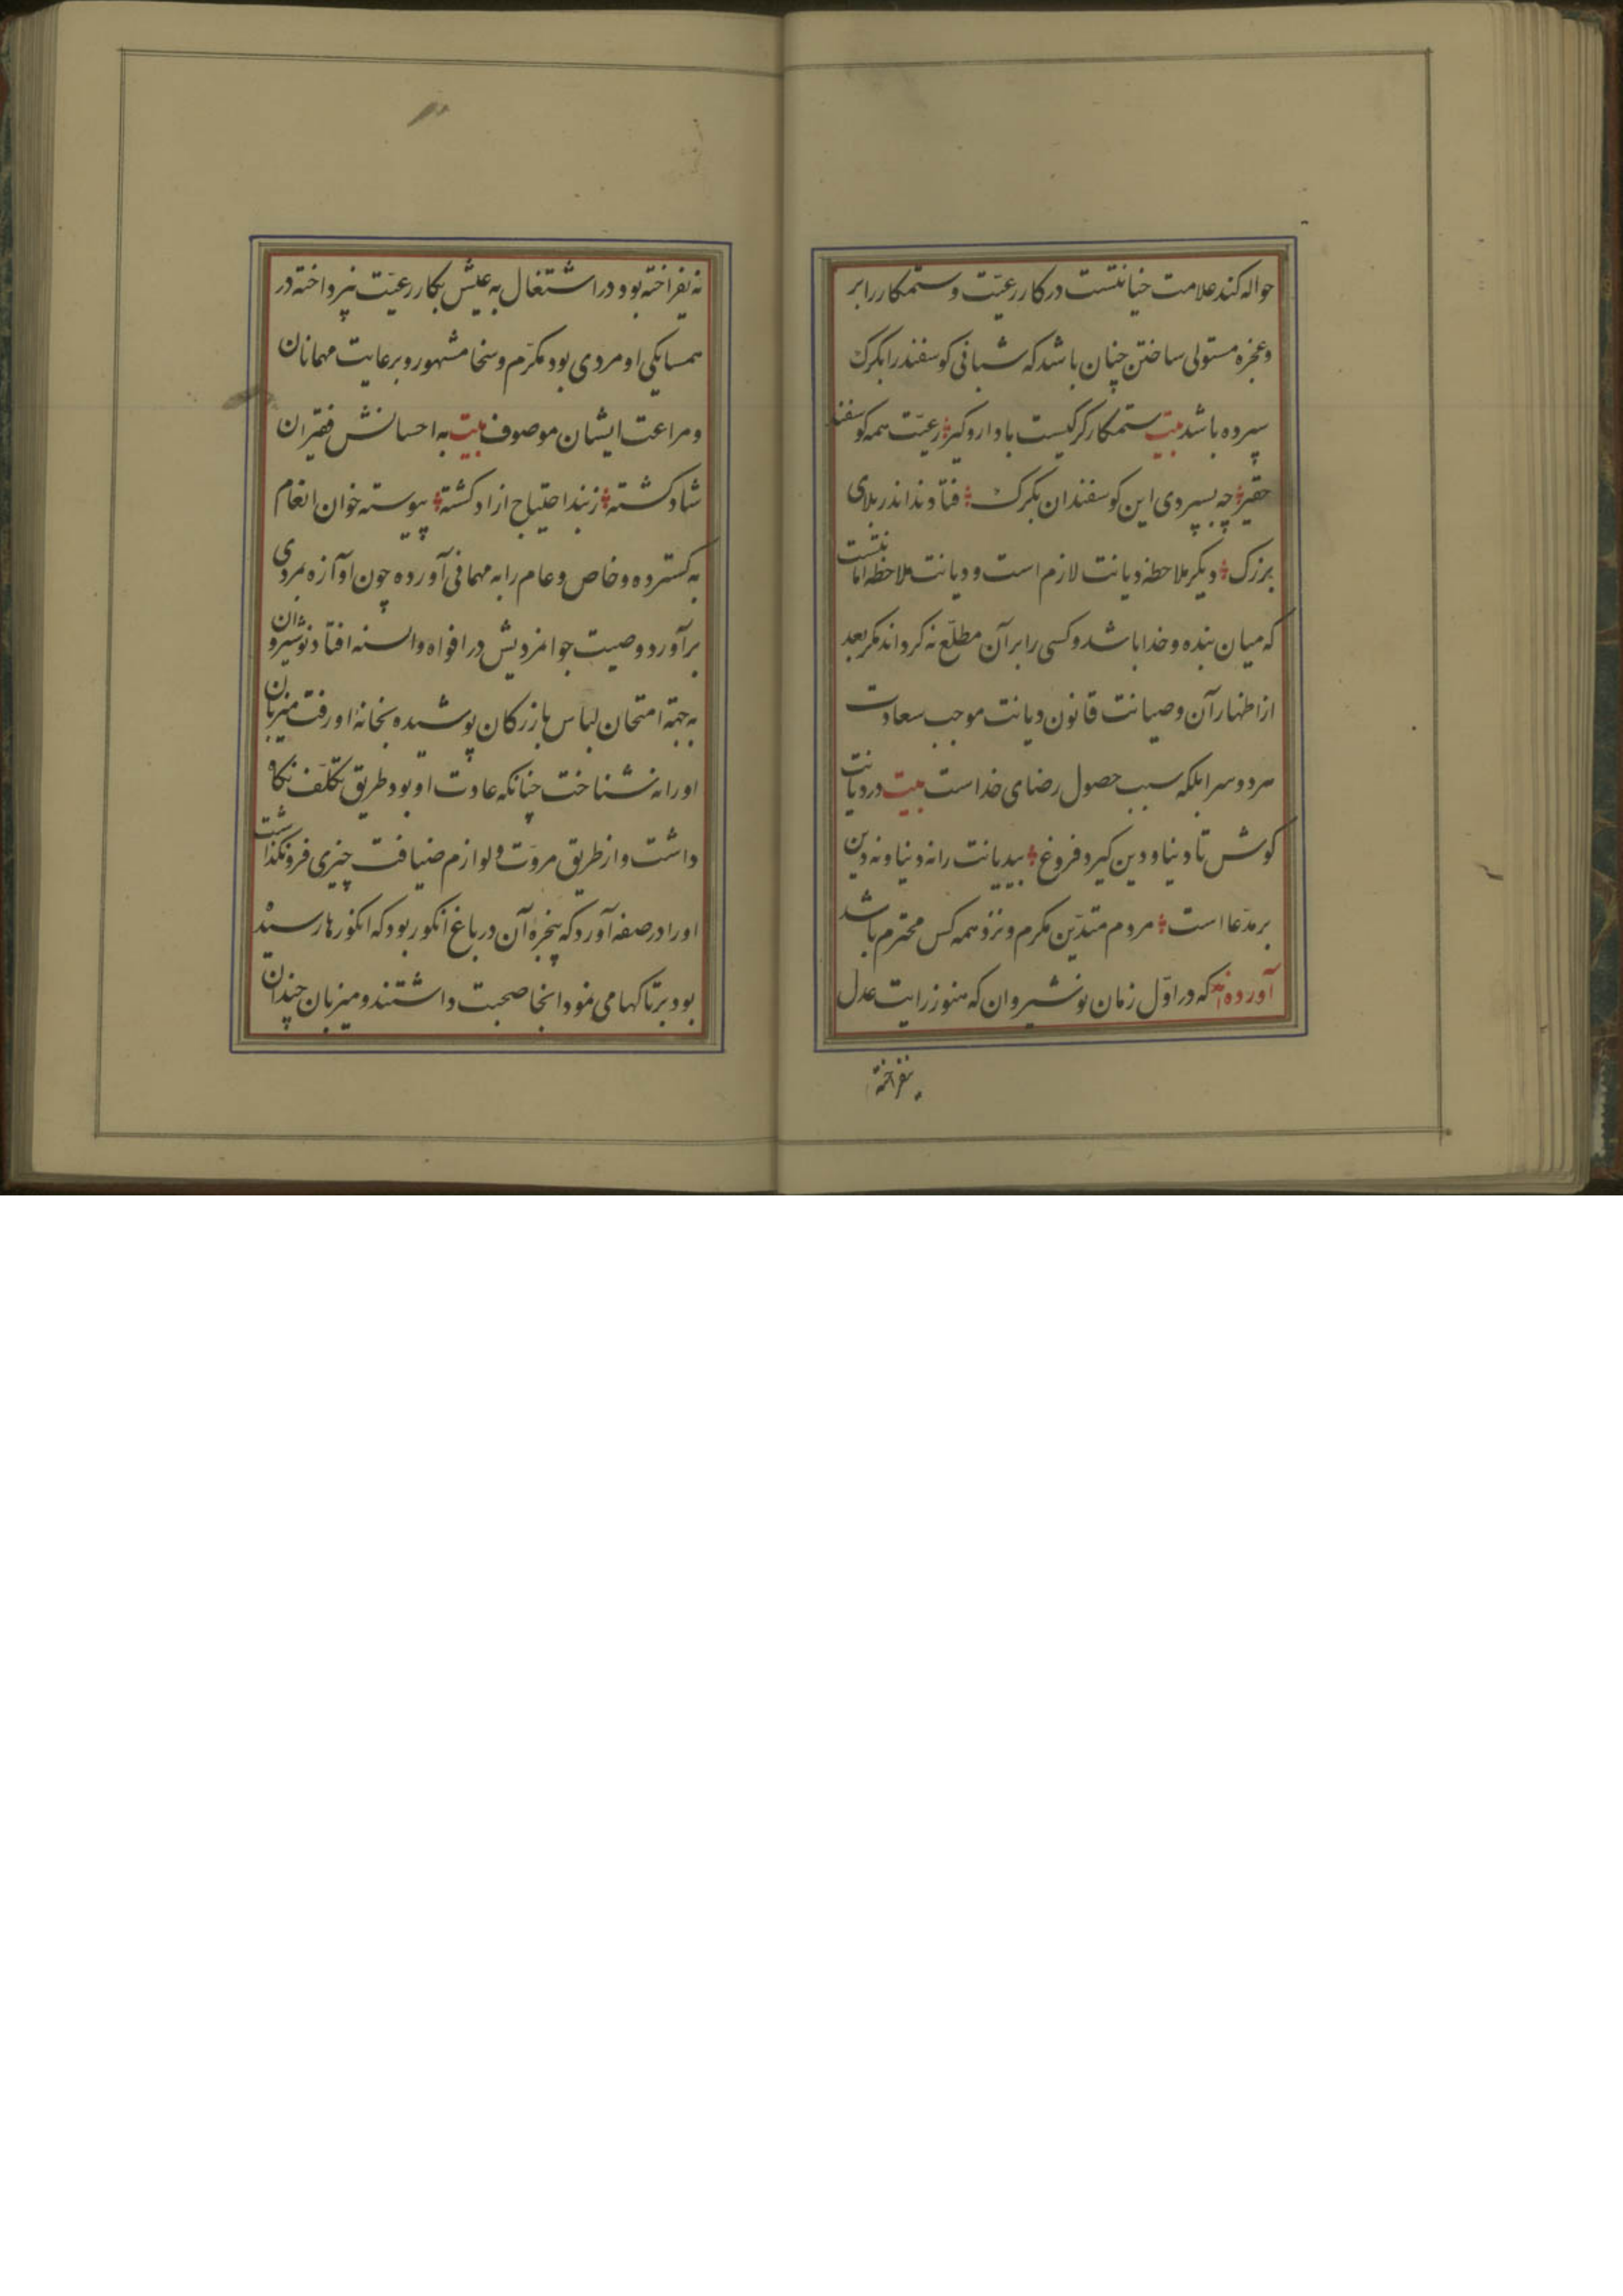 حواله کند علامت خیانتست در کار رعیّت و ستمکار را بر
و عجزه مستولی ساختن چنان باشد که شبانی کوسفند را بکرک
سپرده باشد بیت ستمکار کرکیست با دار و کیر رعیّت همه کوسفند
حقیر چه بسپردی این کوسفندان بکرک فتادند اندر بلای
بزرک دیکر ملاحظه دیانت لازم است و دیانت ملاحظه امانتست
که میان بنده و خدا باشد و کسی را بر آن مطلّع نه کرداند مکر بعد
از اظهار آن و صیانت قانون دیانت موجب سعادت
هر دو سرا بلکه سبب حصول رضای خداست بیت در دیانت
کوش تا دنیا و دین کیرد فروغ بیدیانت را نه دنیا و نه دین
بر مدّعا است مردم متدیّن مکرم و نزد همه کس محترم باشد
آورده‌اند که در اوّل زمان نوشیروان که هنوز رایت عدل
نه یفراخته بود در اشتغال به عیش بکار رعیّت نپرداخته در
همسایکی او مردی بود مکرّم و سخا مشهور و برعایت مهمانان
و مراعت ایشان موصوف بیت به احسانش فقیران
شاد کشته ز بند احتیاج ازاد کشته پیوسته خوان انعام
به کسترده و خاص و عام را به مهمانی آورده چون او آزه بمردی
برآورد و صیت جوانمردیش در افواه و السنه افتاد نوشیروان
به جهته امتحان لباس بازرکان پوشیده بخانهٔ او رفت میزبان
او را نه شناخت چنانکه عادت او بود طریق تکلّف نکاه
داشت و از طریق مروّت و لوازم ضیافت چیزی فرو نکذاشت
او را در صفه آورد که پنجره آن در باغ انکور بود که انکورها رسیده
بود بر تاکها می نمود انجا صحبت داشتند و میزبان چندان